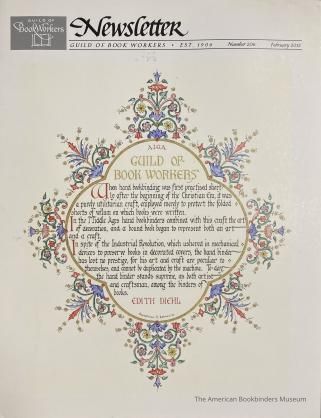 GUILD OF
BOOKWORKERS
Newsletter
GUILD OF BOOK WORKERS • EST. 1906
Number 206
February 2013
AIGA
GUILD OF
BOOK WORKERS
When hand bookbinding was first practised short-
ly after the beginning of the Christian Era, it was
a purely utilitarian craft, employed merely to protect the folded
sheets of vellum on which books were written.
In the Middle Ages hand binders combined with this craft the art
of decoration, and a bound book began to represent both an art
and a craft.
In spite of the Industrial Revolution, which ushered in mechanical
devices to preserve books in decorated covers, the hand binder
has lost no prestige, for his art and craft are peculiar to
themselves, and cannot be duplicated by the machine. To-day
the hand binder stands supreme, as both artist
and craftsman, among the binders of
books.
EDITH DIEHL
The American Bookbinders Museum